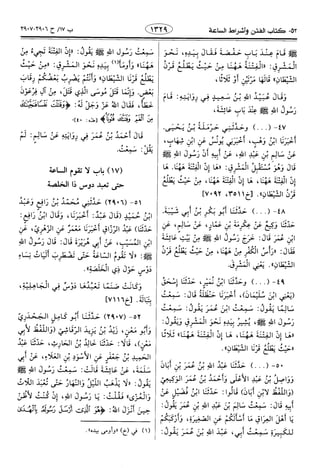 ٥٢- كتاب الفتن وأشراط الساعة
١٣٢٩
ب ١٧/ ح ٢٩٠٦-٢٩٠٧
ﷺ قام عند باب حفصة فقال بيده، نحو
المشرق: «الفتنة ههنا من حيث يطلع قرن
الشيطان» قالها مرتين أو ثلاثا.
وقال عبيد الله بن سعيد في روايته: قام
رسول الله ﷺ عند باب عائشة.
٤٧- (...) وحدثني حرملة بن يحيى.
أخبرنا ابن وهب. أخبرني يونس عن ابن شهاب،
عن سالم بن عبد الله، عن أبيه أن رسول الله ﷺ
قال وهو مستقبل المشرق: «ها إن الفتنة ههنا.
ها إن الفتنة ههنا، ها إن الفتنة ههنا، من حيث يطلع
قرن الشيطان». [خ ٣٥١١، ٧٠٩٢]
٤٨- (...) حدثنا أبو بكر بن أبي شيبة.
حدثنا وكيع عن عكرمة بن عمار، عن سالم، عن
ابن عمر قال: خرج رسول الله ﷺ من بيت عائشة
فقال: «رأس الكفر من ههنا، من حيث يطلع قرن
الشيطان». يعني المشرق.
٤٩- (...) وحدثنا ابن نمير. حدثنا إسحق
(يعني ابن سليمان). أخبرنا حنظلة قال: سمعت
سالما يقول: سمعت ابن عمر يقول: سمعت
رسول الله ﷺ، يشير بيده نحو المشرق ويقول:
«ها إن الفتنة ههنا، ها إن الفتنة ههنا» ثلاثا
«حيث يطلع قرنا الشيطان».
٥٠- (...) حدثنا عبد الله بن عمر بن أبان
وواصل بن عبد الأعلى وأحمد بن عمر الوكيعي
(واللفظ لابن أبان) قالوا: حدثنا ابن فضيل عن
أبيه قال: سمعت سالم بن عبد الله بن عمر يقول:
يا أهل العراق ما أسألكم عن الصغيرة، وأركبكم
للكبيرة سمعت أبي، عبد الله بن عمر يقول:
سمعت رسول الله ﷺ يقول: «إن الفتنة تجيء من
ههنا» وأومأ بيده نحو المشرق «من حيث
يطلع قرنا الشيطان» وأنتم يضرب بعضكم رقاب
بعض. وإنما قتل موسى الذي قتل، من آل فرعون
خطأ. فقال الله عز وجل له:
قال أحمد بن عمر في روايته عن سالم: لم
يقل: سمعت.
(١٧) باب لا تقوم الساعة
حتى تعبد دوس ذا الخلصة
٥١- (٢٩٠٦) حدثني محمد بن رافع وعبد
ابن حميد (قال عبد: أخبرنا، وقال ابن رافع:
حدثنا عبد الرزاق) أخبرنا معمر عن الزهري، عن
ابن المسيب، عن أبي هريرة قال: قال رسول الله
ﷺ: «لا تقوم الساعة حتى تضطرب أليات نساء
دوس حول ذي الخلصة».
وكانت صنما تعبدها دوس في الجاهلية،
بتبالة. [خ ٧١١٦]
٥٢- (٢٩٠٧) حدثنا أبو كامل الجحدري
وأبو معن، زيد بن يزيد الرقاشي (واللفظ لأبي
معن)، قالا: حدثنا خالد بن الحارث. حدثنا عبد
الحميد بن جعفر عن الأسود بن العلاء، عن أبي
سلمة، عن عائشة قالت: سمعت رسول الله ﷺ
يقول: «لا يذهب الليل والنهار حتى تعبد اللات
والعزى» فقلت: يا رسول الله، إن كنت لأظن
حين أنزل الله: ﴿هو الذي أرسل رسوله بالهدى